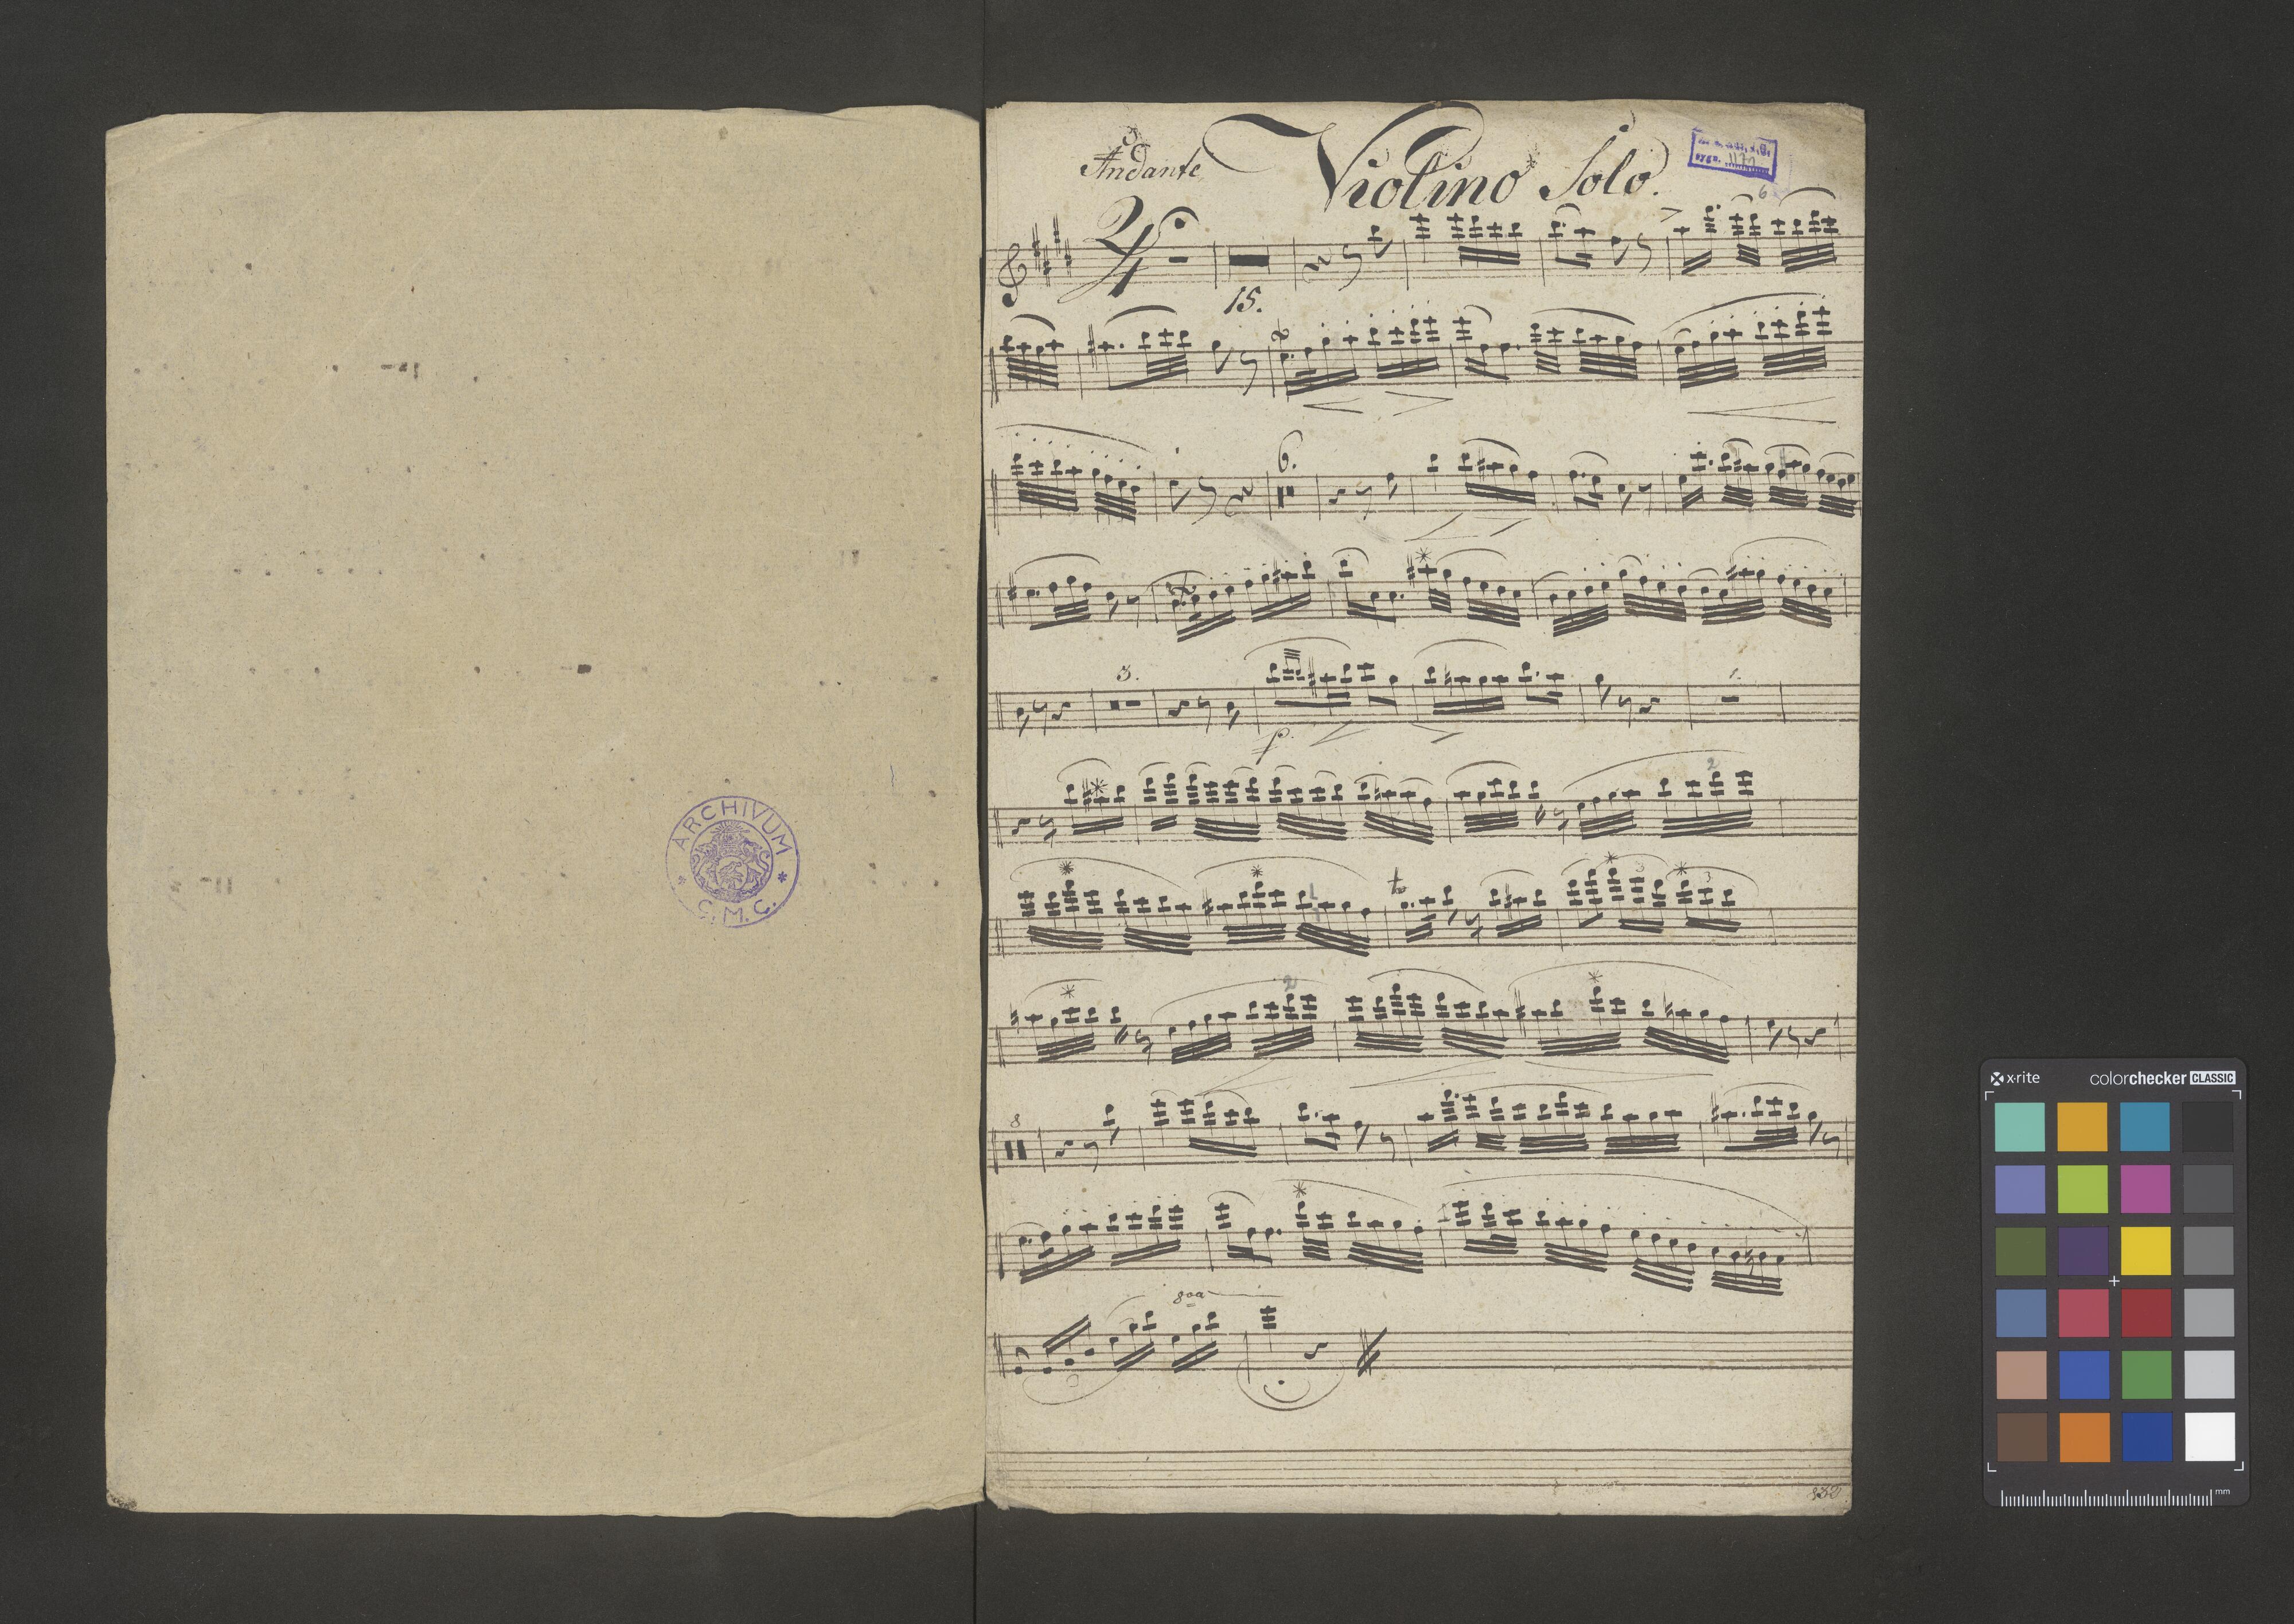 ARCHIVUM
C. M. C.
Andante
Violino Solo.
6
2/4
15.
6.
3.
p.
2
3
3
2
8
8va
x·rite
colorchecker CLASSIC
mm